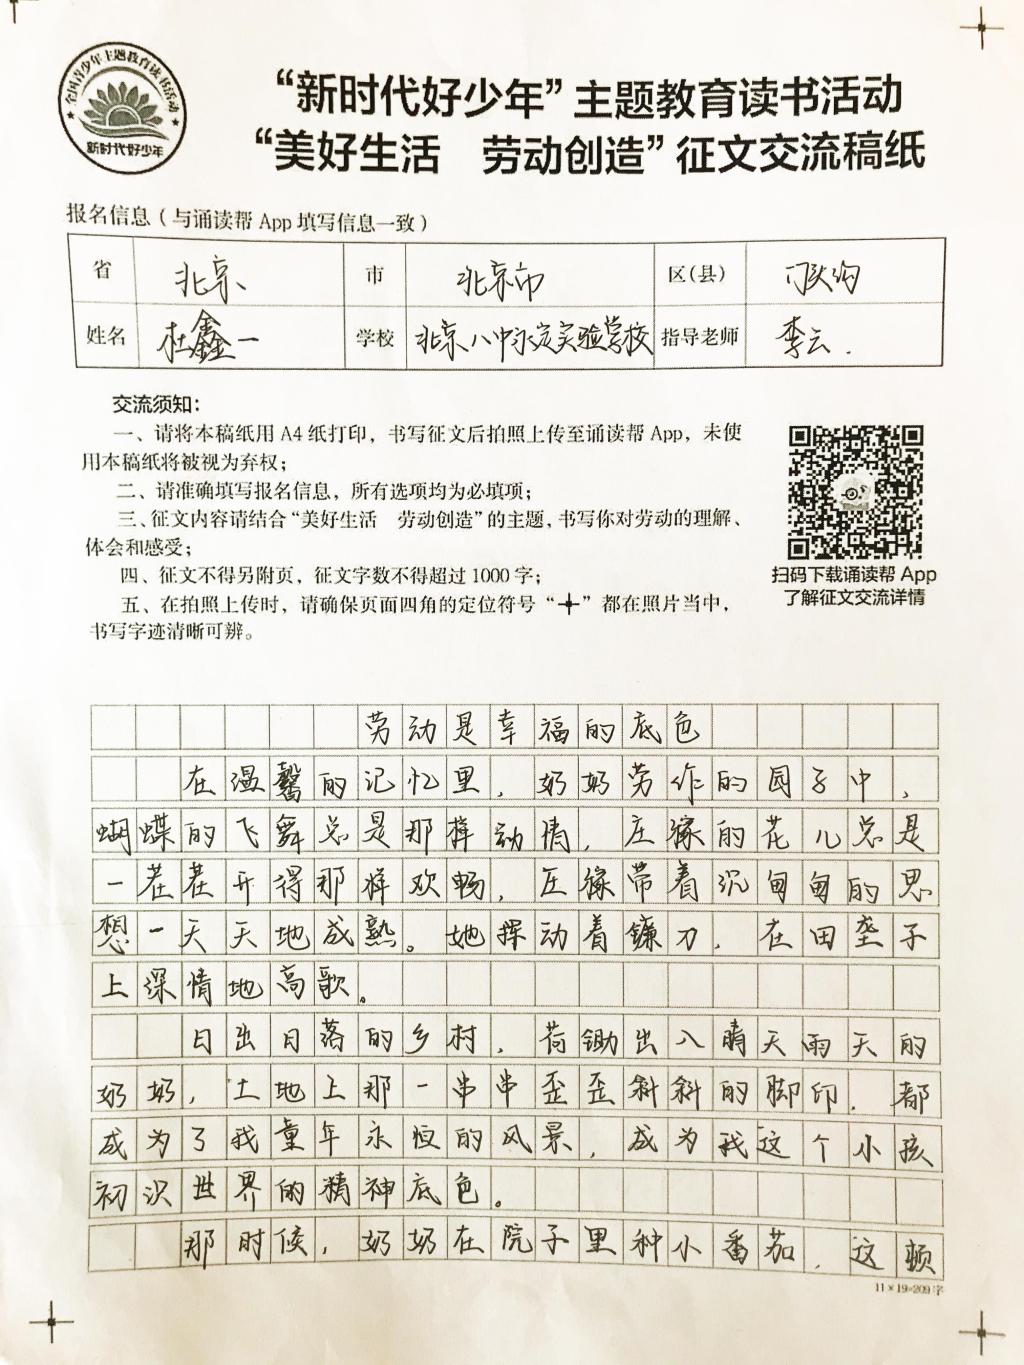 全国青少年主题教育读书活动
新时代好少年
“新时代好少年”主题教育读书活动
“美好生活 劳动创造”征文交流稿纸
报名信息（与诵读帮 App 填写信息一致）
省 北京 市 北京市 区(县) 门头沟
姓名 杜鑫一 学校 北京八中永定实验学校 指导老师 李云.
交流须知：
一、请将本稿纸用 A4 纸打印，书写征文后拍照上传至诵读帮 App，未使
用本稿纸将被视为弃权；
二、请准确填写报名信息，所有选项均为必填项；
三、征文内容请结合“美好生活 劳动创造”的主题，书写你对劳动的理解、
体会和感受；
四、征文不得另附页，征文字数不得超过 1000 字；
五、在拍照上传时，请确保页面四角的定位符号“”都在照片当中，
书写字迹清晰可辨。
扫码下载诵读帮 App
了解征文交流详情
劳动是幸福的底色
在温馨的记忆里，奶奶劳作的园子中，
蝴蝶的飞舞总是那样动情，庄稼的花儿总是
一茬茬开得那样欢畅，庄稼带着沉甸甸的思
想一天天地成熟。她挥动着镰刀，在田垄子
上深情地高歌。
日出日落的乡村，荷锄出入晴天雨天的
奶奶，土地上那一串串歪歪斜斜的脚印，都
成为了我童年永恒的风景，成为我这个小孩
初识世界的精神底色。
那时候，奶奶在院子里种小番茄，这顿
11×19=209字